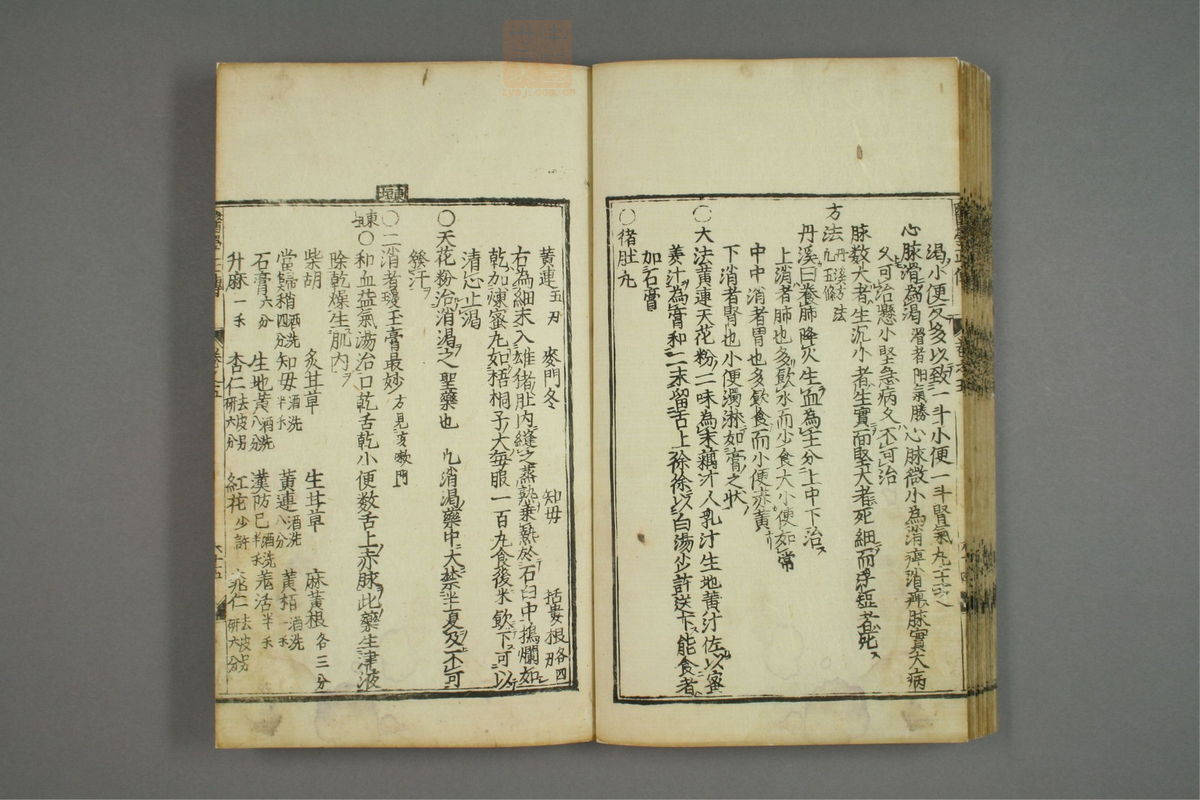 渴小便反多以致一斗小便一斗腎氣丸主之
心脉滑為渴滑者陽氣勝心脉微小為消癉消癉脉實大病
久可治懸小堅急病久不可治
脉数大者生沉小者生實而堅大者死細而浮短者死
方法丹溪方法凢五條
丹溪曰養肺降火生血為主分上中下治
上消者肺也多飲水而少食大小便如常
中消者胃也多飲食而小便赤黄
下消者腎也小便濁淋如膏之状
〇大法黄連天花粉二味為末藕汁人乳汁生地黄汁佐以蜜
姜汁為膏和二末留舌上徐徐以白湯少許送下能食者
加石膏
〇猪肚丸
黄連五刃 麥門冬 知毋 括蔞根各四刃
右為細末入雄猪肚内縫之蒸熟乗熱於石臼中搗爛如
乾加煉蜜丸如梧桐子大每服一百丸食後米飲下可以
清心止渴
〇天花粉治消渴之聖藥也 凢消渴藥中大禁半夏及不可
發汗
〇二消者瓊玉膏最妙方見亥嗽門
東垣
〇和血益氣湯治口乾舌乾小便数舌上赤脉此藥生津液
除乾燥生肌肉
柴胡 炙甘草 生甘草 麻黄根各三分
當歸稍酒洗四分 知毋酒洗半戋 黄連酒洗八分 黄栢酒洗一戋
石膏六分 生地黄酒洗八分 漢防已酒洗半戋 羗活半戋
升麻一戋 杏仁去皮研六分 紅花少許 桃仁去皮研六分